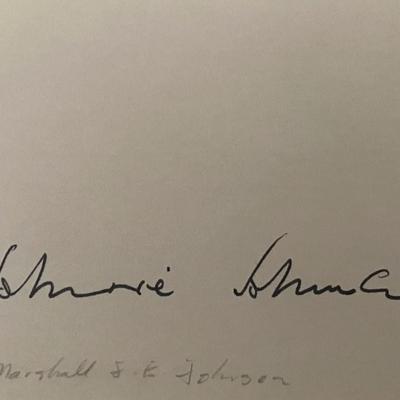 Johnnie Johnson
Marshall J. E. Johnson